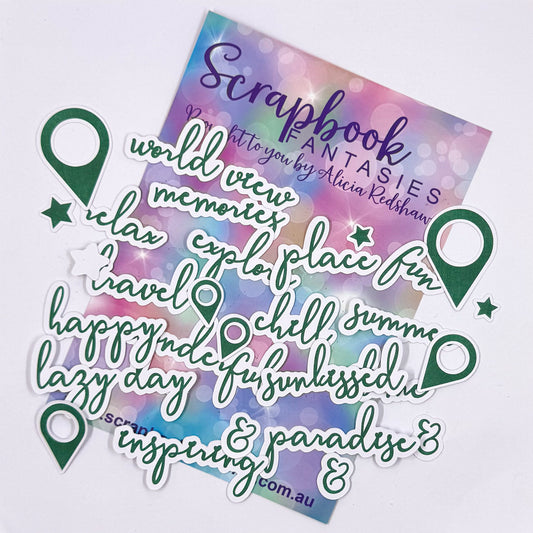 Scrapbook
FANTASIES
Brought to you by Alicia Redshaw
world view
memories
relax
explor
place
fun
travel
chill
summe
happy
nde
lazy day
fu
sunkissed
inspiring
&
paradise
&
&
.scrap
.com.au